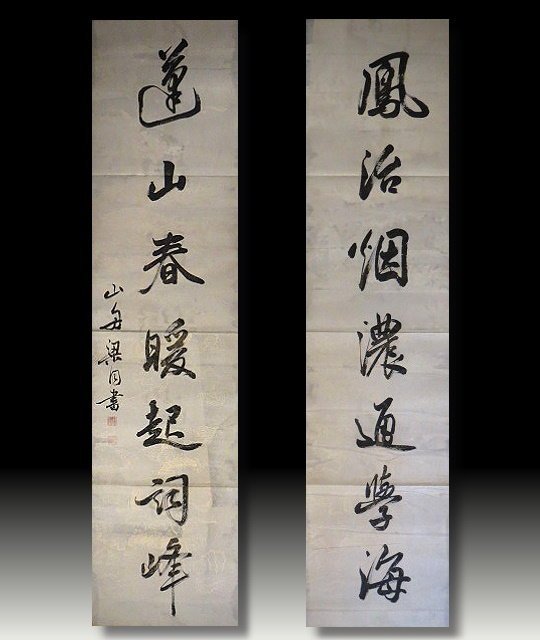 鳳沼烟濃通學海
蓬山春暖起詞峰
山舟梁同書